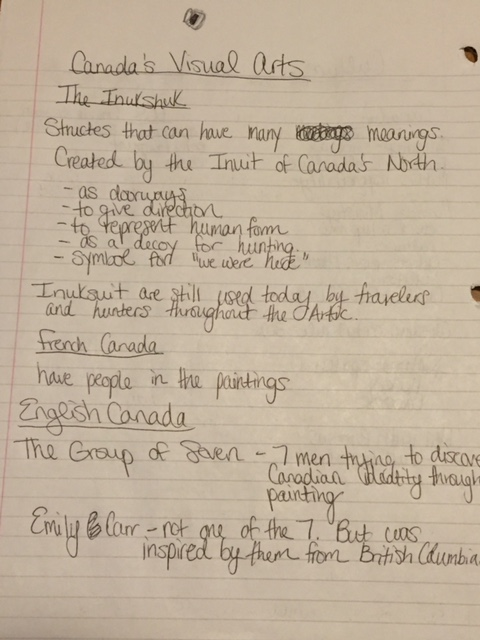 Canada's Visual Arts
The Inukshuk
Structes that can have many meanings.
Created by the Inuit of Canada's North.
- as doorways
- to give direction
- to represent human form
- as a decoy for hunting.
- symbol for "we were here"
Inuksuit are still used today by travelers
and hunters throughout the Artic.
French Canada
have people in the paintings
English Canada
The Group of Seven - 7 men trying to discove
Canadian identity through
painting
Emily Carr - not one of the 7. But was
inspired by them from British Columbia.